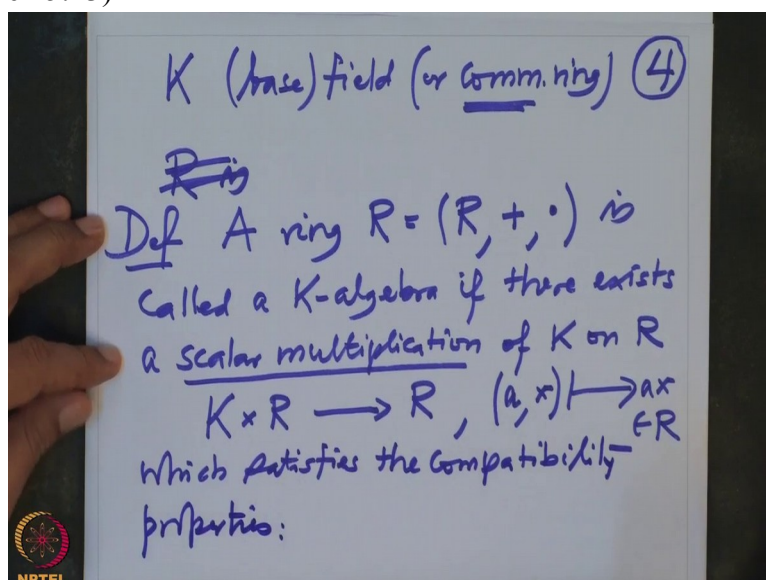 K (base) field (or comm. ring) ④
R is
Def A ring R = (R, +, ·) is
called a K-algebra if there exists
a scalar multiplication of K on R
K × R ⟶ R , (a, x) ⟼ ax
∈ R
which satisfies the compatibility
properties:
NPTEL